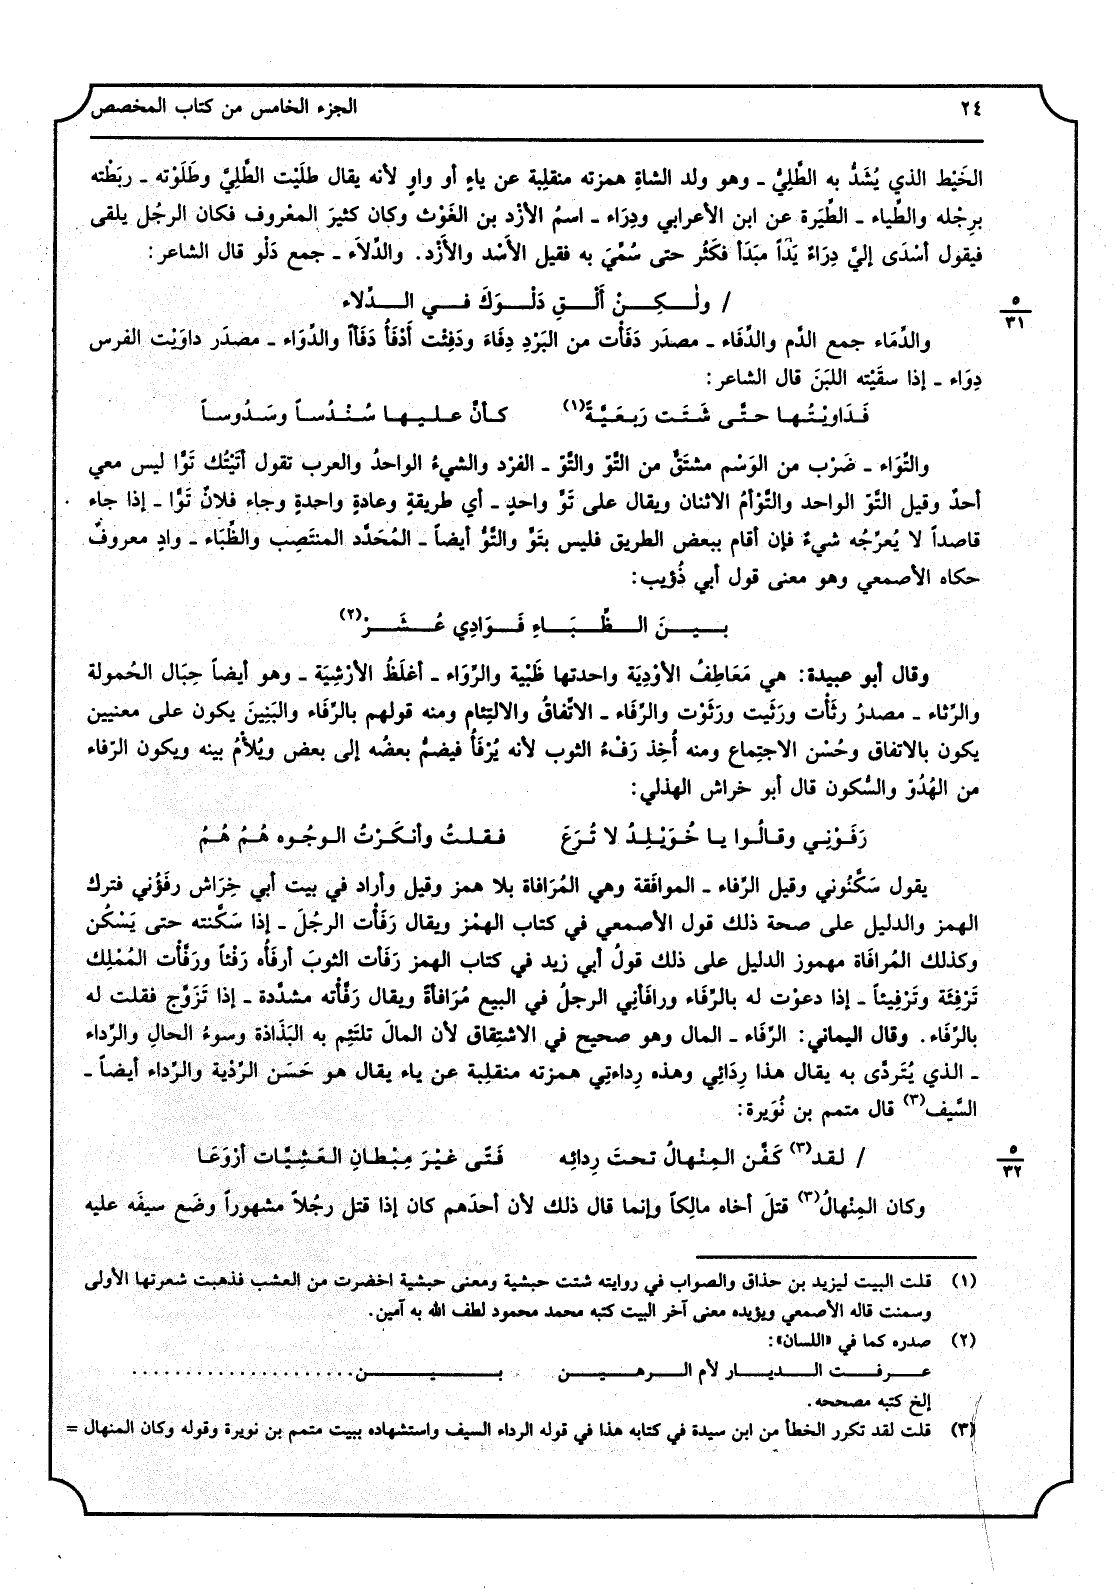 ٢٤ الجزء الخامس من كتاب المخصص
الخَيْط الذي يُشَدُّ به الطَّلِيُّ ـ وهو ولد الشاةِ همزته منقلِبة عن ياءٍ أو واوٍ لأنه يقال طلَيْت الطَّلِيَّ وطَلَوْته ـ ربَطْته
برِجْله والطِّياء ـ الطِّيَرة عن ابن الأعرابي ودِرَاء ـ اسمُ الأزْد بن الغَوْث وكان كثيرَ المعْروف فكان الرجُل يلقى
فيقول أسْدَى إليَّ دِرَاءٌ يَدَاً مبَدَأ فكَثُر حتى سُمِّيَ به فقيل الأَسْد والأَزْد. والدِّلاَء ـ جمع دَلْو قال الشاعر:
/ ولٰكِنْ أَلْقِ دَلْوَكَ في الدِّلاء
٥
٣١
والدِّمَاء جمع الدَّم والدِّفَاء ـ مصدَر دَفَأْت من البَرْدِ دِفَاءَ ودَفِئْت أَدْفَأُ دَفَآاً والدِّوَاء ـ مصدَر داوَيْت الفرس
دِوَاء ـ إذا سقَيْته اللبَنَ قال الشاعر:
فَدَاوَيْتُها حتَّى شَتَت رَبَعَيَّةً(١) كأنَّ عليها سُنْدُساً وسَدُوساً
والتِّوَاء ـ ضَرْب من الوَسْم مشتَقٌّ من التَّوّ والتَّوّ ـ الفرْد والشيءُ الواحدُ والعرب تقول أتَيْتُك تَوًّا ليس معي
أحدٌ وقيل التَّوّ الواحد والتَّوْأمُ الاثنان ويقال على تَوٍّ واحدٍ ـ أي طريقةٍ وعادةٍ واحدةٍ وجاء فلانٌ تَوًّا ـ إذا جاء
قاصداً لا يُعرِّجُه شيءٌ فإن أقام ببعض الطريق فليس بتَوٍّ والتَّوُّ أيضاً ـ المُحَدَّد المنتَصِب والظِّبَاء ـ وادٍ معروفٌ
حكاه الأصمعي وهو معنى قول أبي ذُؤيب:
بينَ الظِّبَاءِ فَوَادِي عُشَرْ(٢)
وقال أبو عبيدة: هي مَعَاطِفُ الأوْدِيَة واحدتها ظَبْية والرِّوَاء ـ أغلَظُ الأرْشِيَة ـ وهو أيضاً حِبَال الحُمولة
والرِّثاء ـ مصدرُ رثَأْت ورَثَيت ورَثَوْت والرِّفَاء ـ الاتِّفاقُ والالتِئام ومنه قولهم بالرِّفَاء والبَنِينَ يكون على معنيين
يكون بالاتفاق وحُسْن الاجتِماع ومنه أُخِذ رَفْءُ الثوب لأنه يُرْفَأُ فيضمُّ بعضُه إلى بعض ويُلأَمُ بينه ويكون الرّفاء
من الهُدُوّ والسُّكون قال أبو خراش الهذلي:
رَفَوْنِي وقالُوا يا خُوَيْلِدُ لا تُرَعَ فقلتُ وأنكَرْتُ الوجُوه هُمُ هُمُ
يقول سَكَّنُوني وقيل الرِّفاء ـ الموافَقة وهي المُرَافاة بلا همز وقيل وأراد في بيت أبي خِرَاش رفَؤُني فترك
الهمز والدليل على صحة ذلك قول الأصمعي في كتاب الهمْز ويقال رَفَأْت الرجُلَ ـ إذا سَكَّنته حتى يَسْكُن
وكذلك المُرافَاة مهموز الدليل على ذلك قولُ أبي زيد في كتاب الهمز رَفَأت الثوبَ أرفَأُه رَفْئاً ورَفَّأْت المُمْلِك
تَرْفِئَة وتَرْفِيئاً ـ إذا دعوْت له بالرِّفَاء ورافَأنِي الرجلُ في البيع مُرَافأةً ويقال رَفَّأته مشدَّدة ـ إذا تَزَوَّج فقلت له
بالرِّفَاء. وقال اليماني: الرِّفَاء ـ المال وهو صحيح في الاشتِقاق لأن المالَ تلتَئِم به البَذَاذة وسوءُ الحالِ والرِّداء
ـ الذي يُتَردَّى به يقال هذا رِدَائِي وهذه رِداءتِي همزته منقلِبة عن ياء يقال هو حَسَن الرِّدْية والرِّداء أيضاً ـ
السَّيف(٣) قال متمم بن نُوَيرة:
/ لقد(٣) كَفَّن المِنْهالُ تحتَ رِدائِه فَتًى غيْرَ مِبْطانِ العَشِيَّات أرْوَعَا
٥
٣٢
وكان المِنْهالُ(٣) قتلَ أخاه مالِكاً وإنما قال ذلك لأن أحدَهم كان إذا قتل رجُلاً مشهوراً وضَع سيفَه عليه
(١) قلت البيت ليزيد بن حذاق والصواب في روايته شتت حبشية ومعنى حبشية اخضرت من العشب فذهبت شعرتها الأولى
وسمنت قاله الأصمعي ويؤيده معنى آخر البيت كتبه محمد محمود لطف الله به آمين.
(٢) صدره كما في «اللسان»:
عرفت الديار لأم الرهين بين....................
إلخ كتبه مصححه.
(٣) قلت لقد تكرر الخطأ من ابن سيدة في كتابه هذا في قوله الرداء السيف واستشهاده ببيت متمم بن نويرة وقوله وكان المنهال =